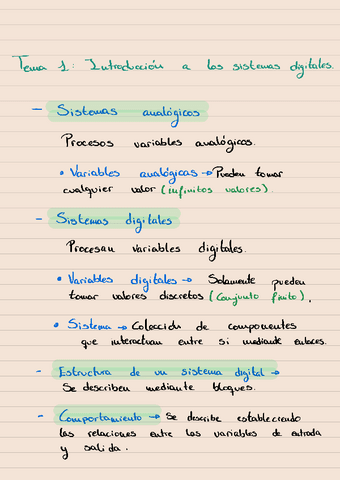 Tema 1: Introducción a los sistemas digitales.
- Sistemas analógicos
Procesos variables analógicos.
• Variables analógicas → Pueden tomar
cualquier valor (infinitos valores).
- Sistemas digitales
Procesan variables digitales.
• Variables digitales → Solamente pueden
tomar valores discretos (Conjunto finito).
• Sistema → Colección de componentes
que interactuan entre si mediante enlaces.
- Estructura de un sistema digital →
Se describen mediante bloques.
- Comportamiento → Se describe estableciendo
las relaciones entre las variables de entrada
y salida.